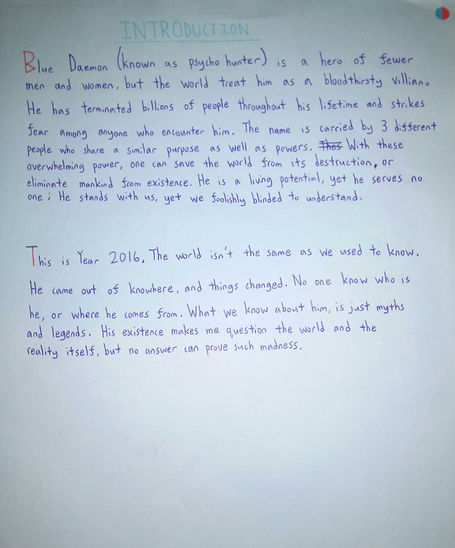 INTRODUCTION
Blue Daemon (known as psycho hunter) is a hero of fewer
men and women, but the world treat him as a bloodthirsty villian.
He has terminated billions of people throughout his lifetime and strikes
fear among anyone who encounter him. The name is carried by 3 different
people who share a similar purpose as well as powers. With these
overwhelming power, one can save the world from its destruction, or
eliminate mankind from existence. He is a living potential, yet he serves no
one; He stands with us, yet we foolishly blinded to understand.
This is Year 2016. The world isn't the same as we used to know.
He came out of knowhere, and things changed. No one know who is
he, or where he comes from. What we know about him, is just myths
and legends. His existence makes me question the world and the
reality itself, but no answer can prove such madness.